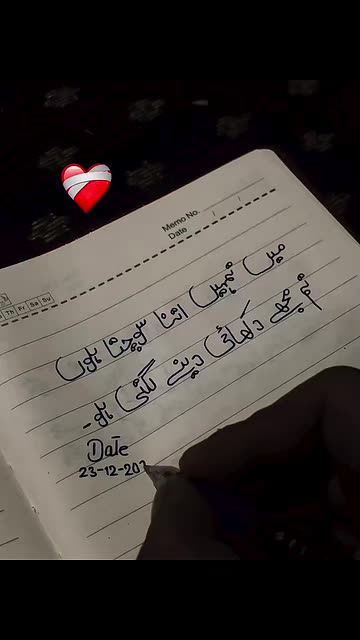 Memo No.
Date / /
Th Fr Sa Su
میں تمہیں اتنا سوچتا ہوں
تم مجھے دکھائی دینے لگتی ہو۔
Date
23-12-202